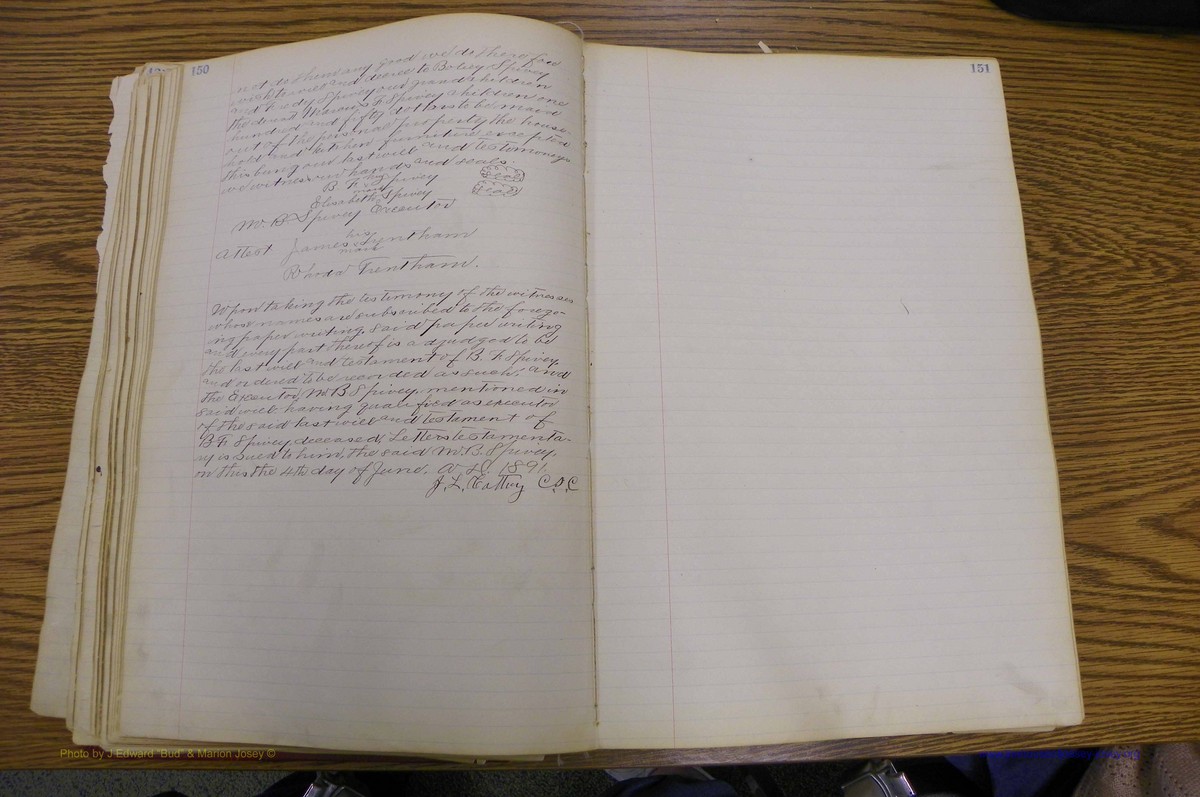 150
not to them any good we do therefore
wish to will and decree to Betsey Spivey
and Hady Spivey our grand children
the dowell Marcus F Spivey children one
hundred and fifty dollars to be made
out of the personal property the house
hold and kitchen furniture excepted
this being our last will and testimony
we witness our hands and seals.
B. F. his mark Spivey Seal
Elisabeth Spivey Seal
M. B. Spivey Executor
Attest James his mark Trentham
Rhoda Trentham.
Upon taking the testimony of the witnesses
whose names are subscribed to the forego-
ing paper writing. Said paper writing
and every part thereof is adjudged to be
the last will and testament of B. F. Spivey,
and ordered to be recorded as such. and
the Executor M. B Spivey, mentioned in
said will having qualified as executor
of the said last will and testament of
B F. Spivey, deceased, Letters testamenta-
ry is sued to him, the said M. B. Spivey.
on this the 4th day of June. A. D. 1891.
J. L. C.S.C
151
Photo by J Edward "Bud" & Marion Josey ©